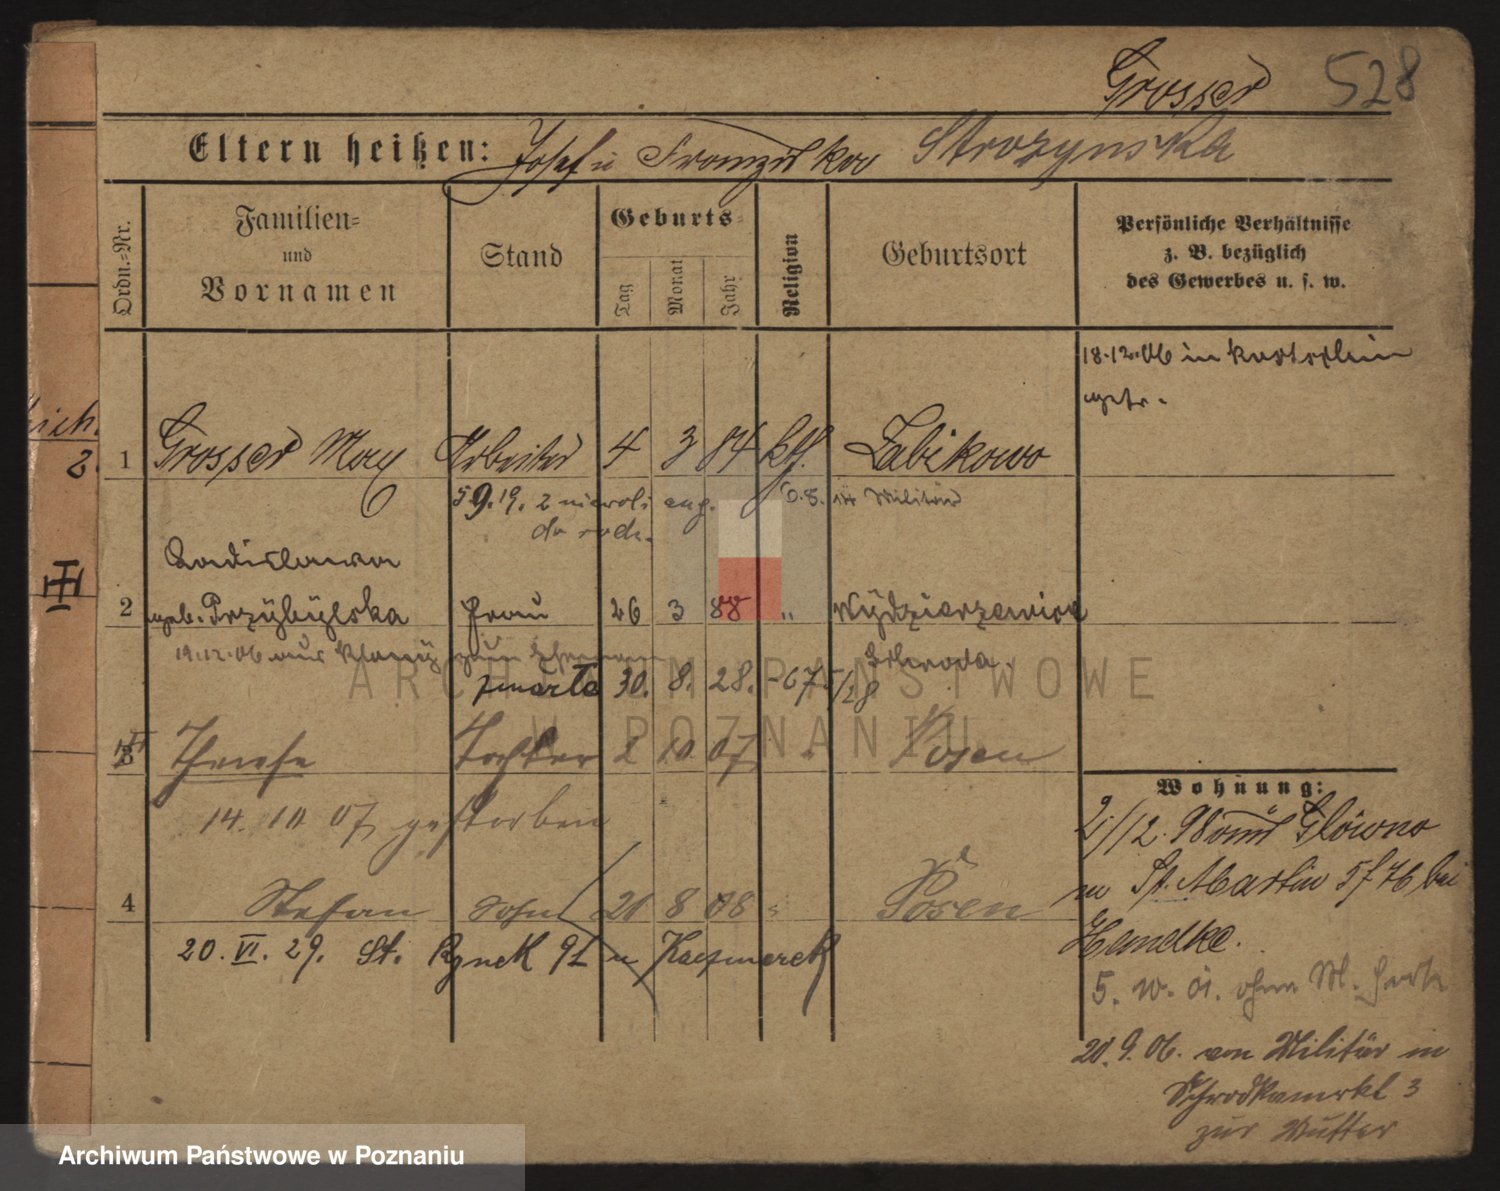 Grosser 528
Eltern heißen: Josef u Franziska Strozynska
Ordn.=Nr.
Familien=
und
Vornamen
Stand
Geburts=
Tag
Monat
Jahr
Religion
Geburtsort
Persönliche Verhältnisse
z. B. bezüglich
des Gewerbes u. s. w.
18.12.06 in
getr.
1 Grosser Max Arbeiter 4 3 84 kth. Zabikowo
2.
59.19. 2 do Militär
Ladislawa
III
2 geb. Przybylska Frau 26 3 88 "
19.12.06 aus
Schroda.
zmarła 30. 8. 28. 67/28
3 Therese Tochter 2 10 07 " Posen
14. 10 07 gestorben
4 Stefan Sohn 20 8 08 " Posen
20. VI. 29. St. Rynek 91 u Kaczmarek
Wohnung:
2/12. 98 Glówno
in St. Martin 5/76 bei
Hendke.
5. 10. 01. ohne M.
20. 9. 06. von Militär in
Schrodkamrkt 3
zur Mutter
ARCHIWUM PAŃSTWOWE
W POZNANIU
Archiwum Państwowe w Poznaniu